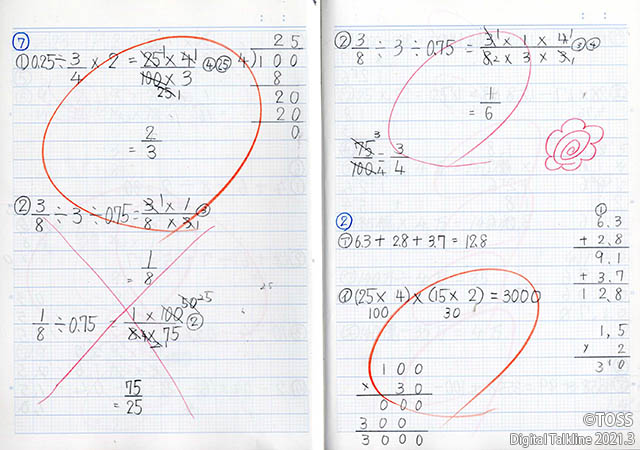 ⑦
① 0.25 ÷ 3/4 × 2 = 25 × 4 / 100 × 3
= 2/3
25
4)100
8
20
20
0
② 3/8 ÷ 3 ÷ 0.75 = 3 × 1 / 8 × 3
= 1/8
1/8 ÷ 0.75 = 1 × 100 / 8 × 75
= 75/25
② 3/8 ÷ 3 ÷ 0.75 = 3 × 1 × 4 / 8 × 3 × 3
= 1/6
75/100 = 3/4
②
① 6.3 + 2.8 + 3.7 = 12.8
6.3
+ 2.8
9.1
+ 3.7
12.8
(25 × 4) × (15 × 2) = 3000
100 30
1,5
× 2
30
100
× 30
000
300
3000
©TOSS
Digital Talkline 2021.3